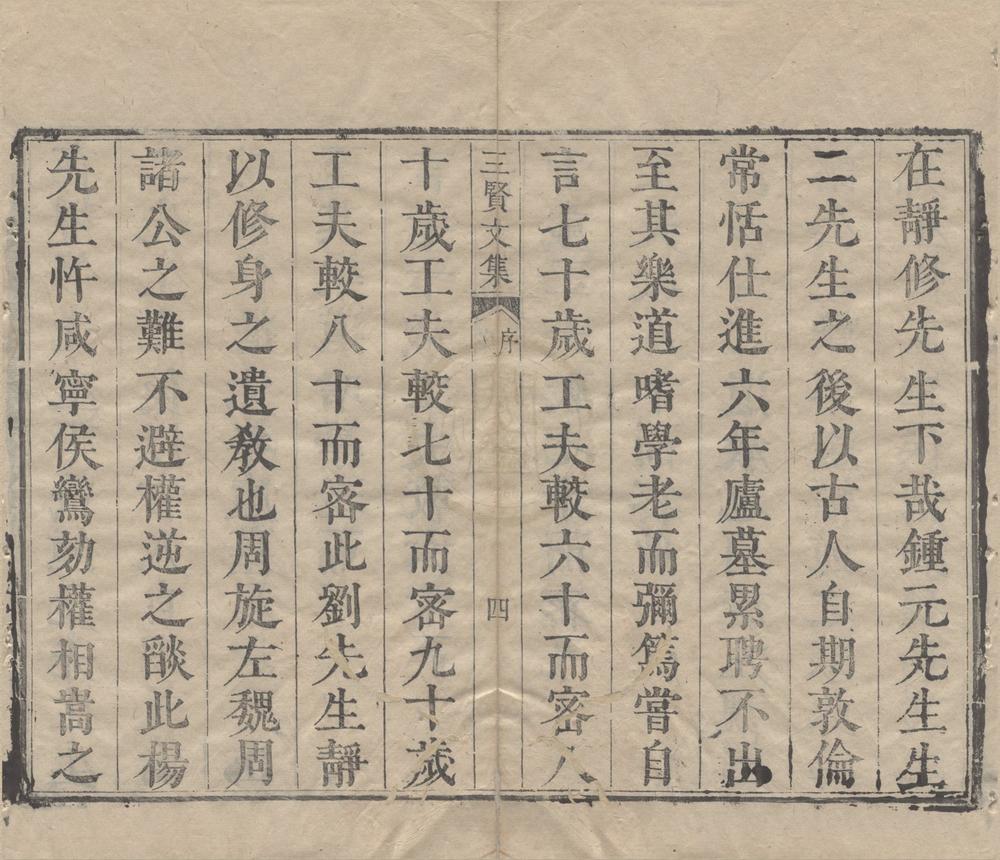 在靜修先生下哉鍾元先生生
二先生之後以古人自期敦倫
常恬仕進六年廬墓累聘不出
至其樂道嗜學老而彌篤嘗自
言七十歲工夫較六十而密八
三賢文集 序 四
十歲工夫較七十而密九十歲
工夫較八十而密此劉先生靜
以修身之遺教也周旋左魏周
諸公之難不避權逆之燄此楊
先生忤咸寧侯鸞劾權相嵩之